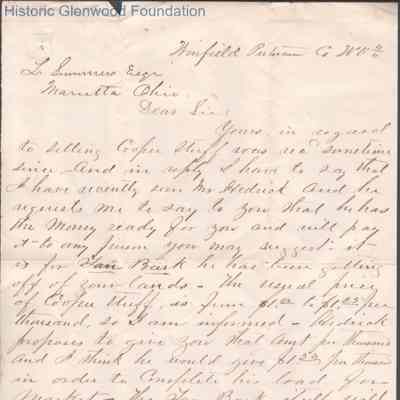 Historic Glenwood Foundation
Winfield Putnam Co W Va
L. Summers Esqr
Marietta Ohio
Dear Sir
Yours in regard
to selling Cooper Stuff was rec sometime
since And in reply I have to say that
I have recently seen Mr Hedrick And he
requests me to say to you that he has
the Money ready for you and will pay
it to any person you may suggest. it
is for Tan Bark he has been getting
off of your Lands - The usual price
of Cooper Stuff, is from $1.00 to $1.25 per
thousand, so I am informed - Hedrick
proposes to give you that amt per thousand
and I think he would give $1.25 per thousand
in order to Complete his load for
Market - The Tan Bark